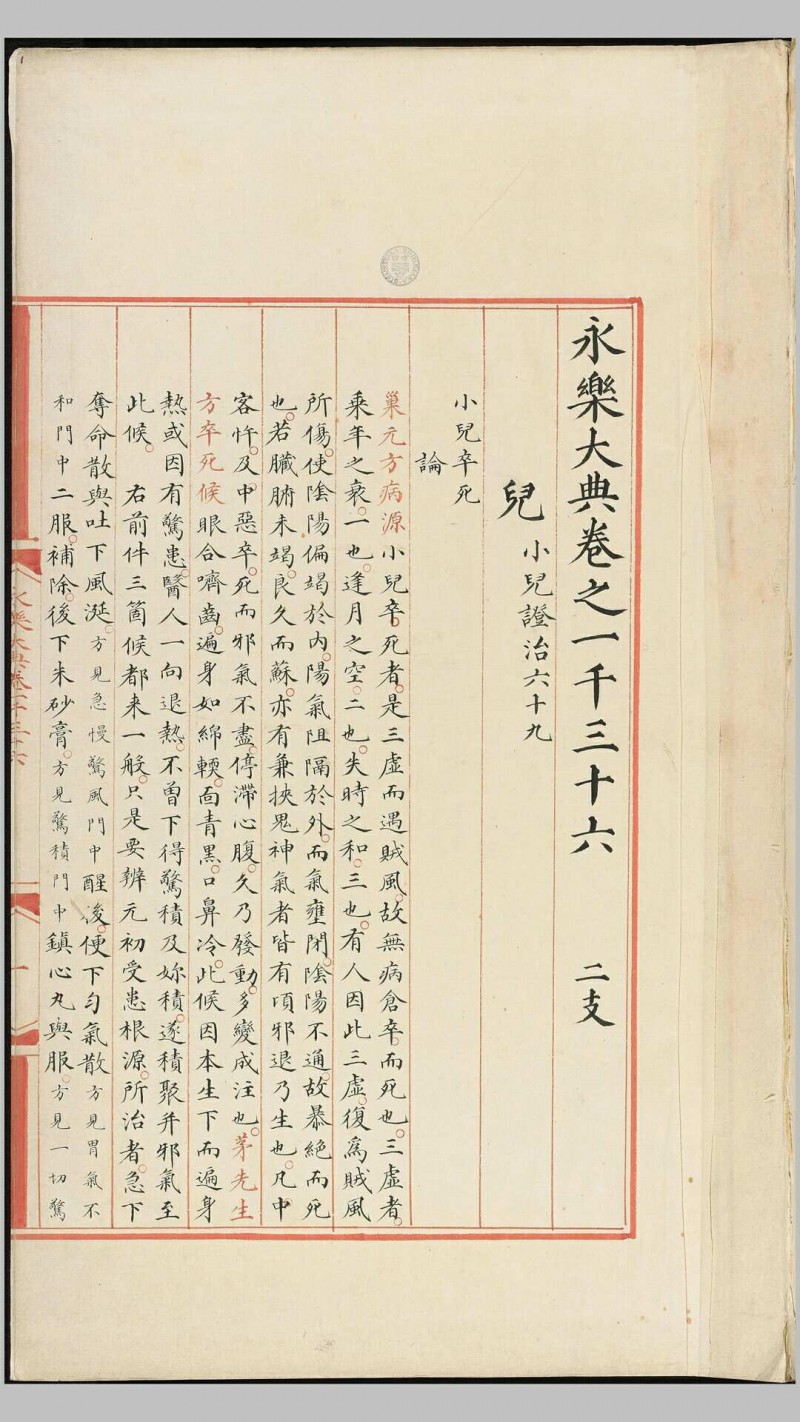 永樂大典卷之一千三十六　二支
兒　小兒證治六十九
小兒卒死
論
巢元方病源小兒卒死者。是三虛而遇賊風。故無病倉卒。而死也。三虛者。
乘年之衰。一也。逢月之空。二也。失時之和。三也。有人因此三虛。復爲賊風
所傷。使陰陽偏竭於內。陽氣阻隔於外。而氣壅閉。陰陽不通。故暴絕而死
也。若臟腑未竭。良久而蘇。亦有兼挾鬼神氣者。皆有頃邪退乃生也。凡中
客忤。及中惡卒。死而邪氣不盡。停滯心腹。久乃發動。多變成注也。茅先生
方卒死候眼合嚌齒。遍身如綿輭。面青黑。口鼻冷。此候因本生下而遍身
熱或因有驚患。醫人一向退熱。不曾下得驚積及妳積。遂積聚并邪氣至
此候。右前件三箇候都来一般。只是要辨元初受患根源。所治者。急下
奪命散與吐下風涎。方見急慢驚風門中醒後。便下勻氣散方見胃氣不
和門中二服。補除。後下朱砂膏。方見驚積門中鎮心丸與服。方見一切驚
永樂大典卷一千三十六
一